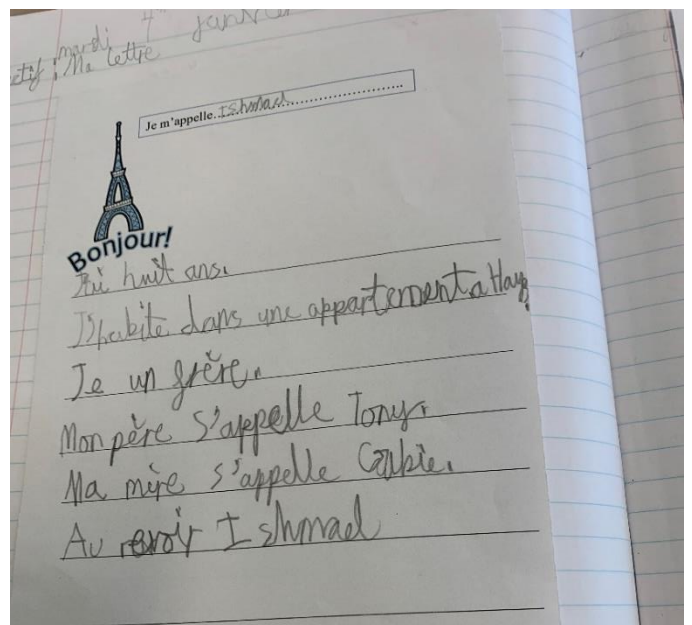 mardi 4 janvier
ctif : Ma lettre
Je m'appelle...Ishmael..............................
Bonjour!
J'ai huit ans.
J'habite dans une appartement a Hay
Je un frère.
Mon père s'appelle Tony.
Ma mère s'appelle
Au revoir Ishmael